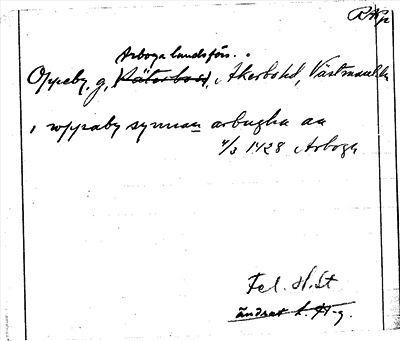 RAp
Arboga landsförs.
Oppeby, g, Säterbo sn, Åkerbo hd, Västmanl. län
i wppaby synnan arbugha aa
4/3 1428 Arboga
Fel. H. St
ändrat t. H-g.